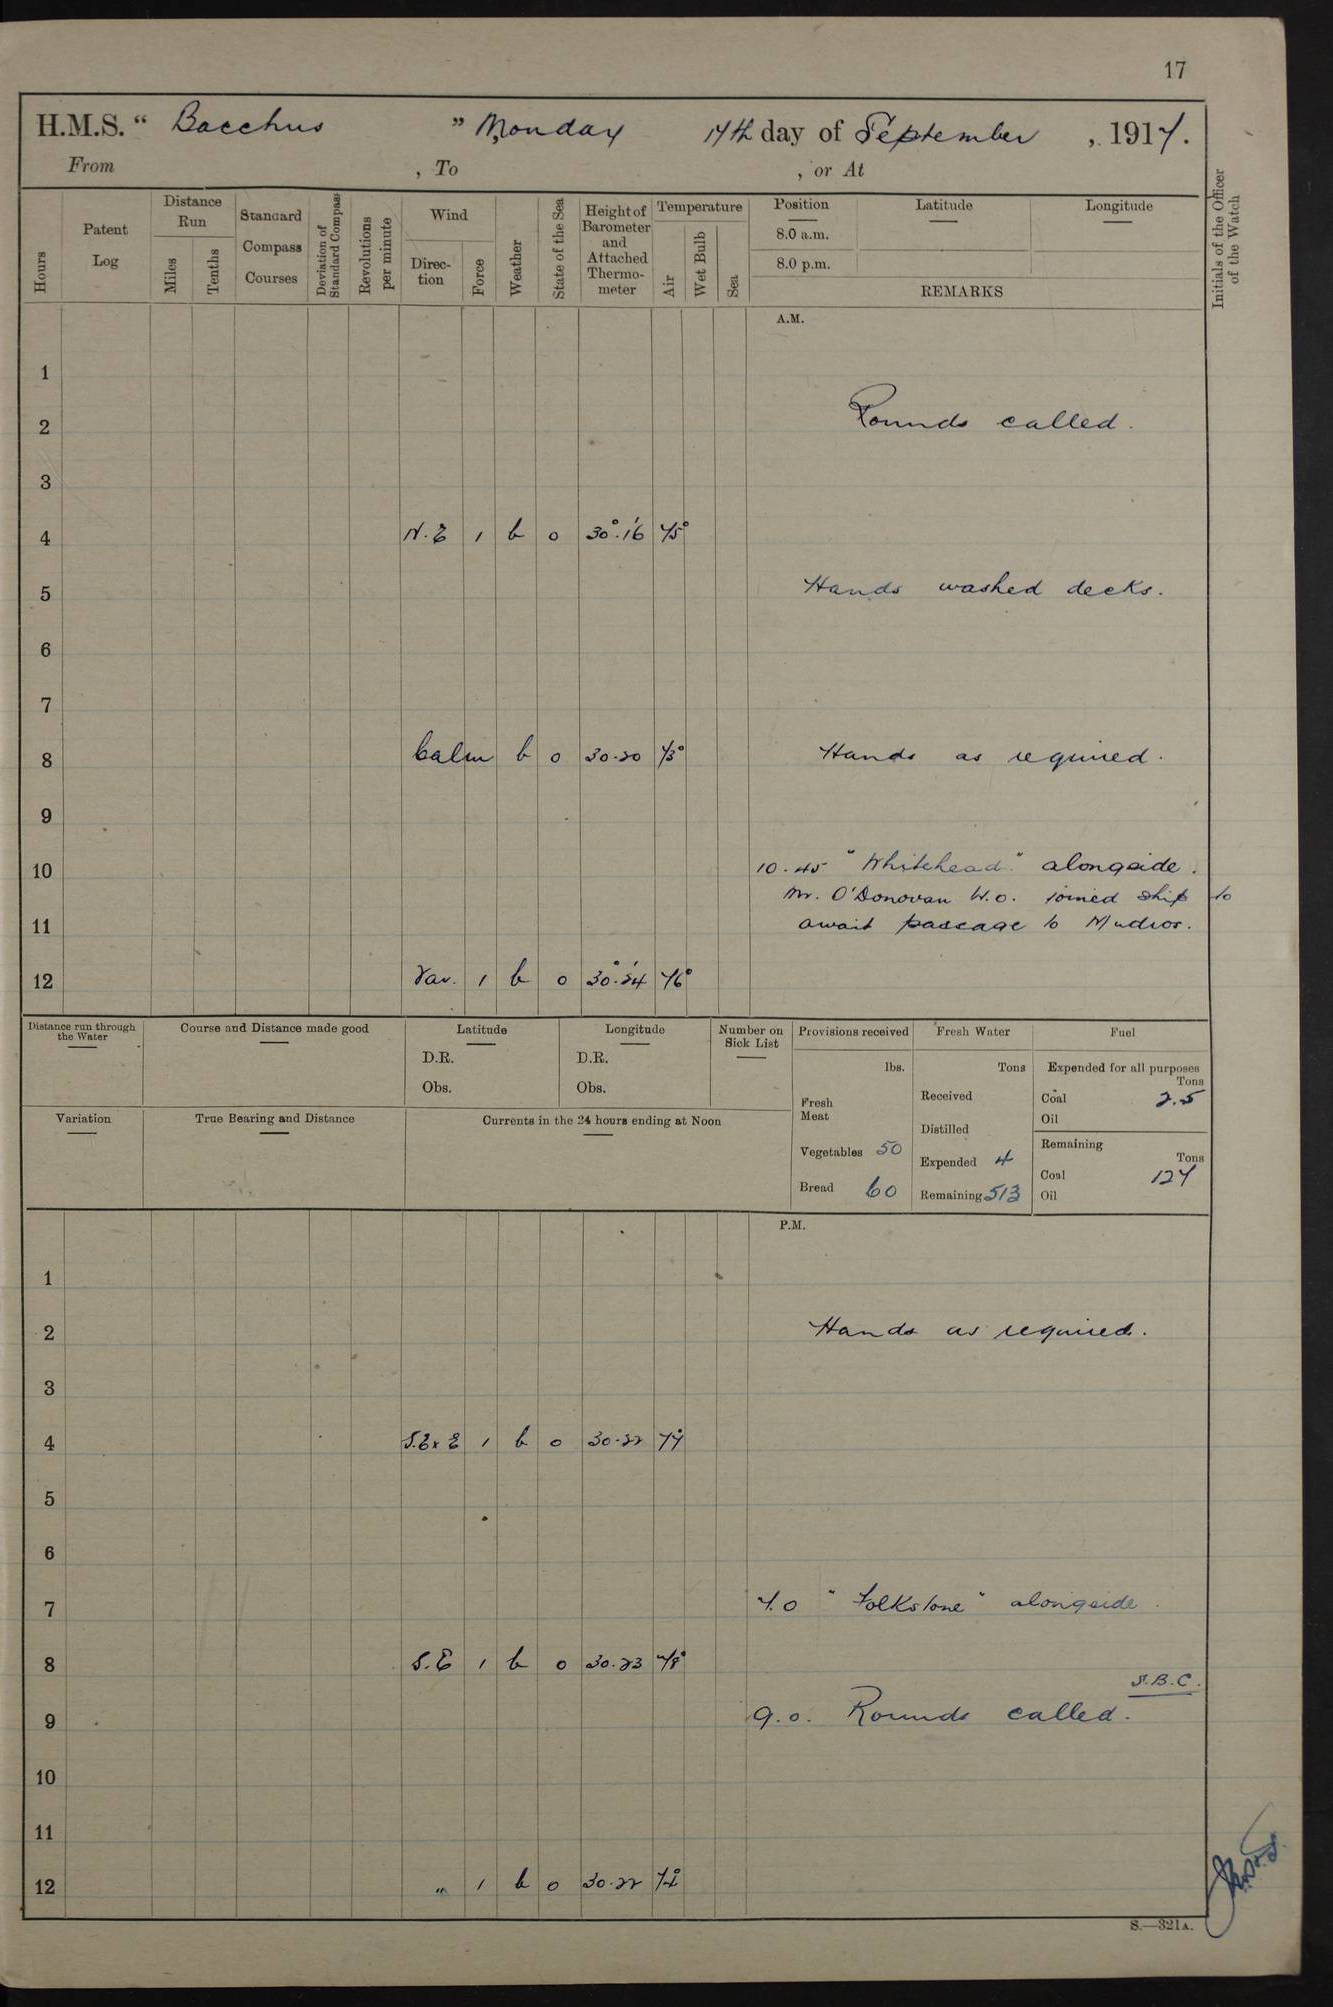 17
H.M.S. “ Bacchus ” Monday 17th day of September , 1917.
From , To , or At
Hours
Patent Log
Distance Run
Miles
Tenths
Standard Compass Courses
Deviation of Standard Compass
Revolutions per minute
Wind
Direc-tion
Force
Weather
State of the Sea
Height of Barometer and Attached Thermo-meter
Temperature
Air
Wet Bulb
Sea
Position Latitude Longitude
8.0 a.m.
8.0 p.m.
REMARKS
Initials of the Officer of the Watch
A.M.
1
2 Rounds called.
3
4 N.E 1 b 0 30.16 75°
5 Hands washed decks.
6
7
8 Calm b 0 30.20 73° Hands as required.
9
10 10.45 "Whitehead" alongside.
Mr. O'Donovan W.O. joined ship to
11 await passage to Mudros.
12 Var. 1 b 0 30.24 76°
Distance run through the Water
Course and Distance made good
Latitude
D.R.
Obs.
Longitude
D.R.
Obs.
Number on Sick List
Variation
True Bearing and Distance
Currents in the 24 hours ending at Noon
Provisions received
lbs.
Fresh Meat
Vegetables 50
Bread 60
Fresh Water
Tons
Received
Distilled
Expended 4
Remaining 513
Fuel
Expended for all purposes
Tons
Coal 2.5
Oil
Remaining
Tons
Coal 127
Oil
P.M.
1
2 Hands as required.
3
4 S.E x E 1 b 0 30.22 77°
5
6
7 7.0 "Folkstone" alongside.
8 S.E 1 b 0 30.23 78°
S.B.C.
9 9.0. Rounds called.
10
11
12 " 1 b 0 30.22
S.—321A.